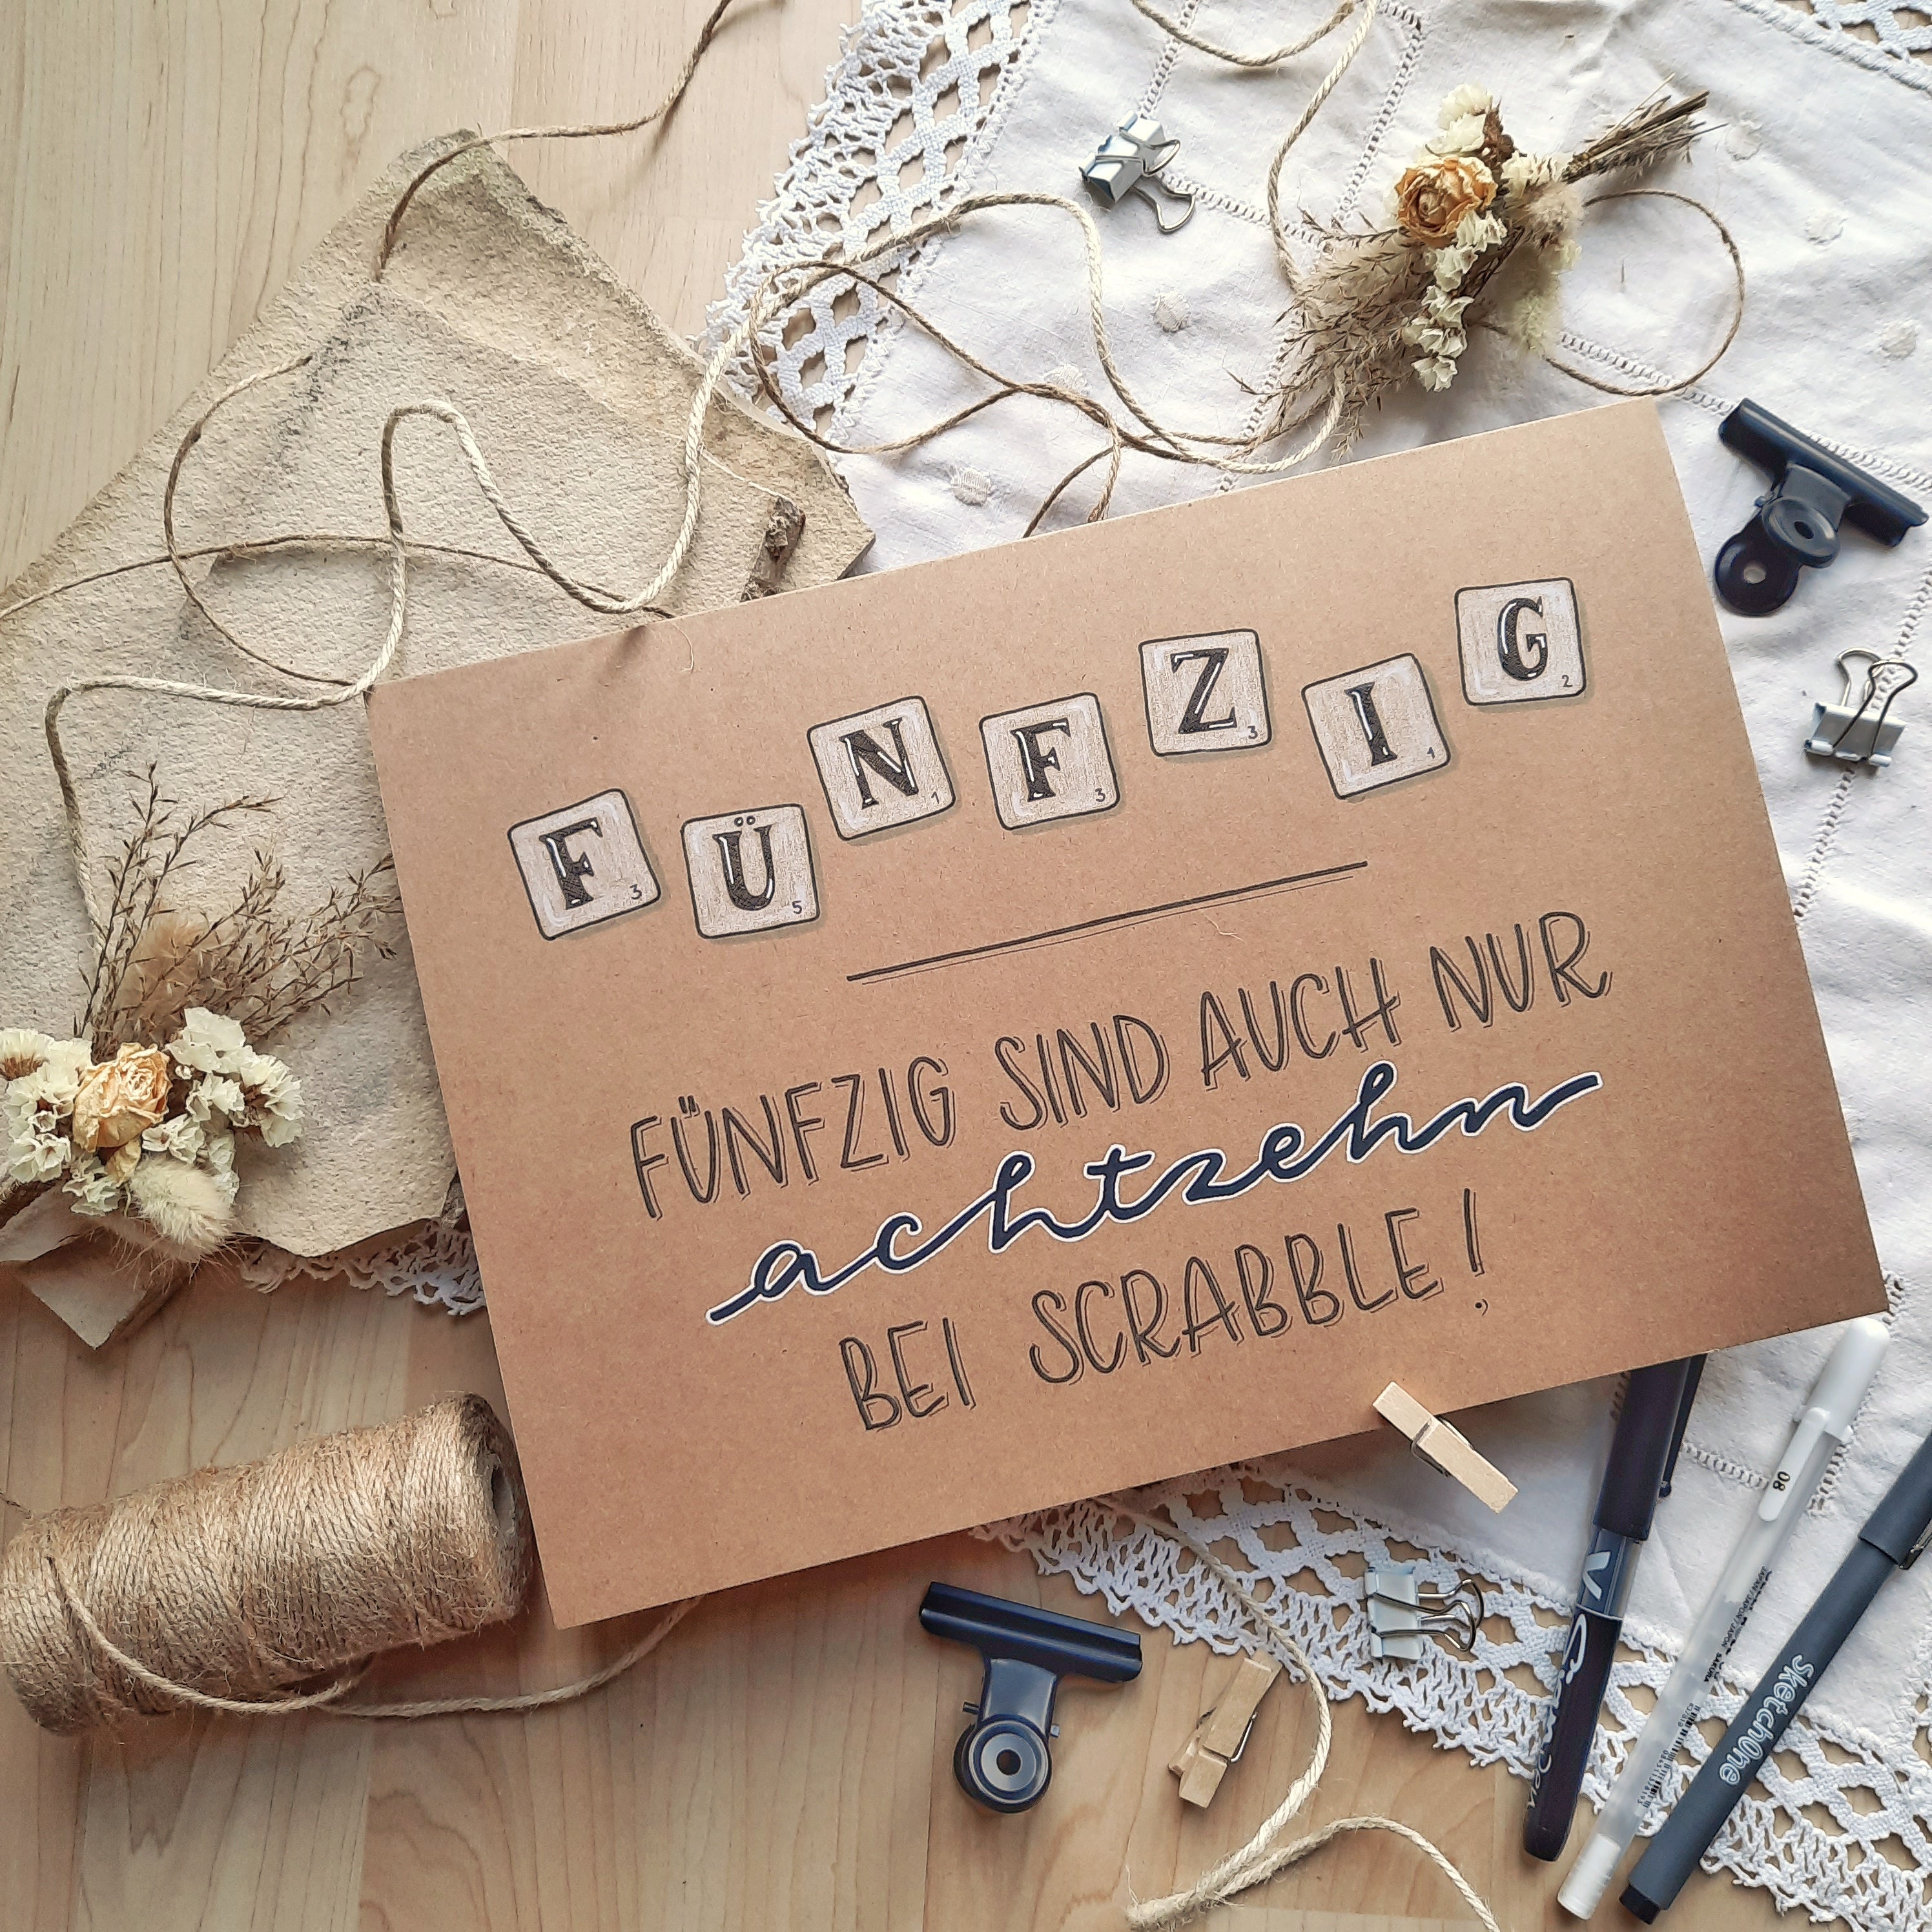 FÜNFZIG
3 5 1 3 3 1 2
FÜNFZIG SIND AUCH NUR
achtzehn
BEI SCRABBLE!
08
SAKURA
sketchOne
V